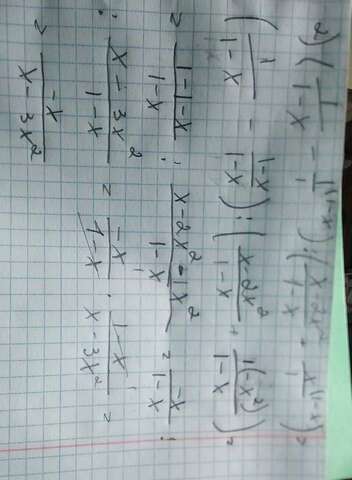 2) (1/(1-x) - 1(1-x)/1) : ((x-2x²)/(1-x) - x(1-x)/1) =
(1/(1-x) - (1-x)/(1-x)) : ((x-2x²)/(1-x) + 1(-x²)/(1-x)) =
= (1-1-x)/(1-x) : (x-2x²-1x²)/(1-x) = -x/(1-x) :
: (x-3x²)/(1-x) = -x/(1-x) · (1-x)/(x-3x²) =
= -x/(x-3x²)